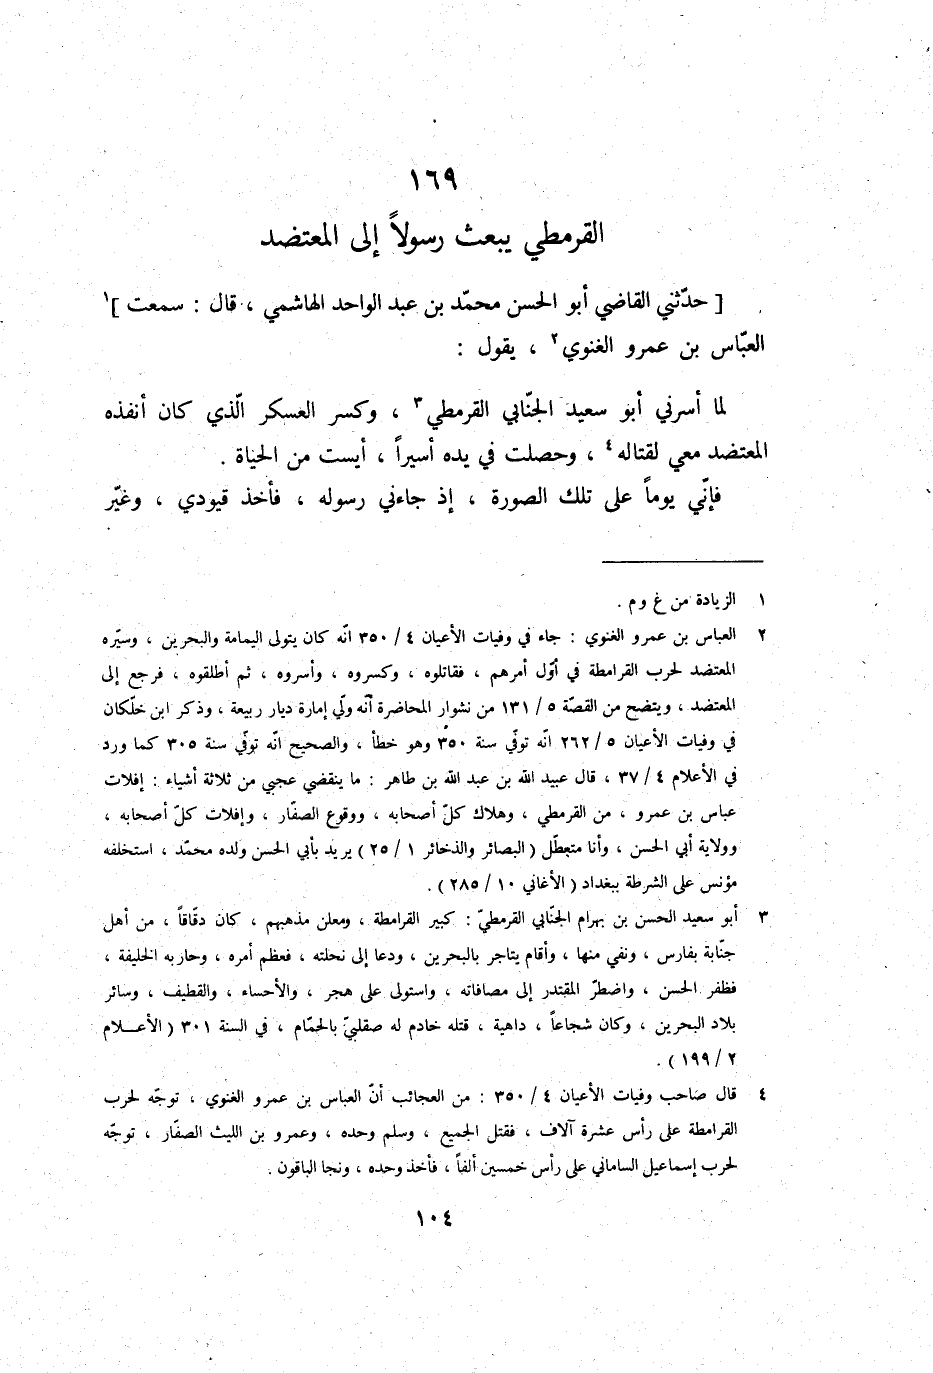 ١٦٩
القرمطي يبعث رسولاً إلى المعتضد
[ حدّثني القاضي أبو الحسن محمّد بن عبد الواحد الهاشمي ، قال : سمعت ]١
العبّاس بن عمرو الغنوي٢ ، يقول :
لما أسرني أبو سعيد الجنّابي القرمطي٣ ، وكسر العسكر الّذي كان أنفذه
المعتضد معي لقتاله٤ ، وحصلت في يده أسيراً ، أيست من الحياة .
فإنّي يوماً على تلك الصورة ، إذ جاءني رسوله ، فأخذ قيودي ، وغيّر
١ الزيادة من غ وم .
٢ العباس بن عمرو الغنوي : جاء في وفيات الأعيان ٤ / ٣٥٠ انّه كان يتولى اليمامة والبحرين ، وسيّره
المعتضد لحرب القرامطة في أوّل أمرهم ، فقاتلوه ، وكسروه ، وأسروه ، ثم أطلقوه ، فرجع إلى
المعتضد ، ويتضح من القصّة ٥ / ١٣١ من نشوار المحاضرة أنّه ولّي إمارة ديار ربيعة ، وذكر ابن خلّكان
في وفيات الأعيان ٥ / ٢٦٢ انّه توفّي سنة ٣٥٠ وهو خطأ ، والصحيح انّه توفّي سنة ٣٠٥ كما ورد
في الأعلام ٤ / ٣٧ ، قال عبيد الله بن عبد الله بن طاهر : ما ينقضي عجبي من ثلاثة أشياء : إفلات
عباس بن عمرو ، من القرمطي ، وهلاك كلّ أصحابه ، ووقوع الصفّار ، وإفلات كلّ أصحابه ،
وولاية أبي الحسن ، وأنا متعطّل ( البصائر والذخائر ١ / ٢٥ ) يريد بأبي الحسن ولده محمّد ، استخلفه
مؤنس على الشرطة ببغداد ( الأغاني ١٠ / ٢٨٥ ) .
٣ أبو سعيد الحسن بن بهرام الجنّابي القرمطيّ : كبير القرامطة ، ومعلن مذهبهم ، كان دقّاقاً ، من أهل
جنّابة بفارس ، ونفي منها ، وأقام يتاجر بالبحرين ، ودعا إلى نحلته ، فعظم أمره ، وحاربه الخليفة ،
فظفر الحسن ، واضطرّ المقتدر إلى مصافاته ، واستولى على هجر ، والأحساء ، والقطيف ، وسائر
بلاد البحرين ، وكان شجاعاً ، داهية ، قتله خادم له صقلبيّ بالحمّام ، في السنة ٣٠١ ( الأعـــلام
٢ / ١٩٩ ) .
٤ قال صاحب وفيات الأعيان ٤ / ٣٥٠ : من العجائب أنّ العباس بن عمرو الغنوي ، توجّه لحرب
القرامطة على رأس عشرة آلاف ، فقتل الجميع ، وسلم وحده ، وعمرو بن الليث الصفّار ، توجّه
لحرب إسماعيل الساماني على رأس خمسين ألفاً ، فأخذ وحده ، ونجا الباقون .
١٠٤